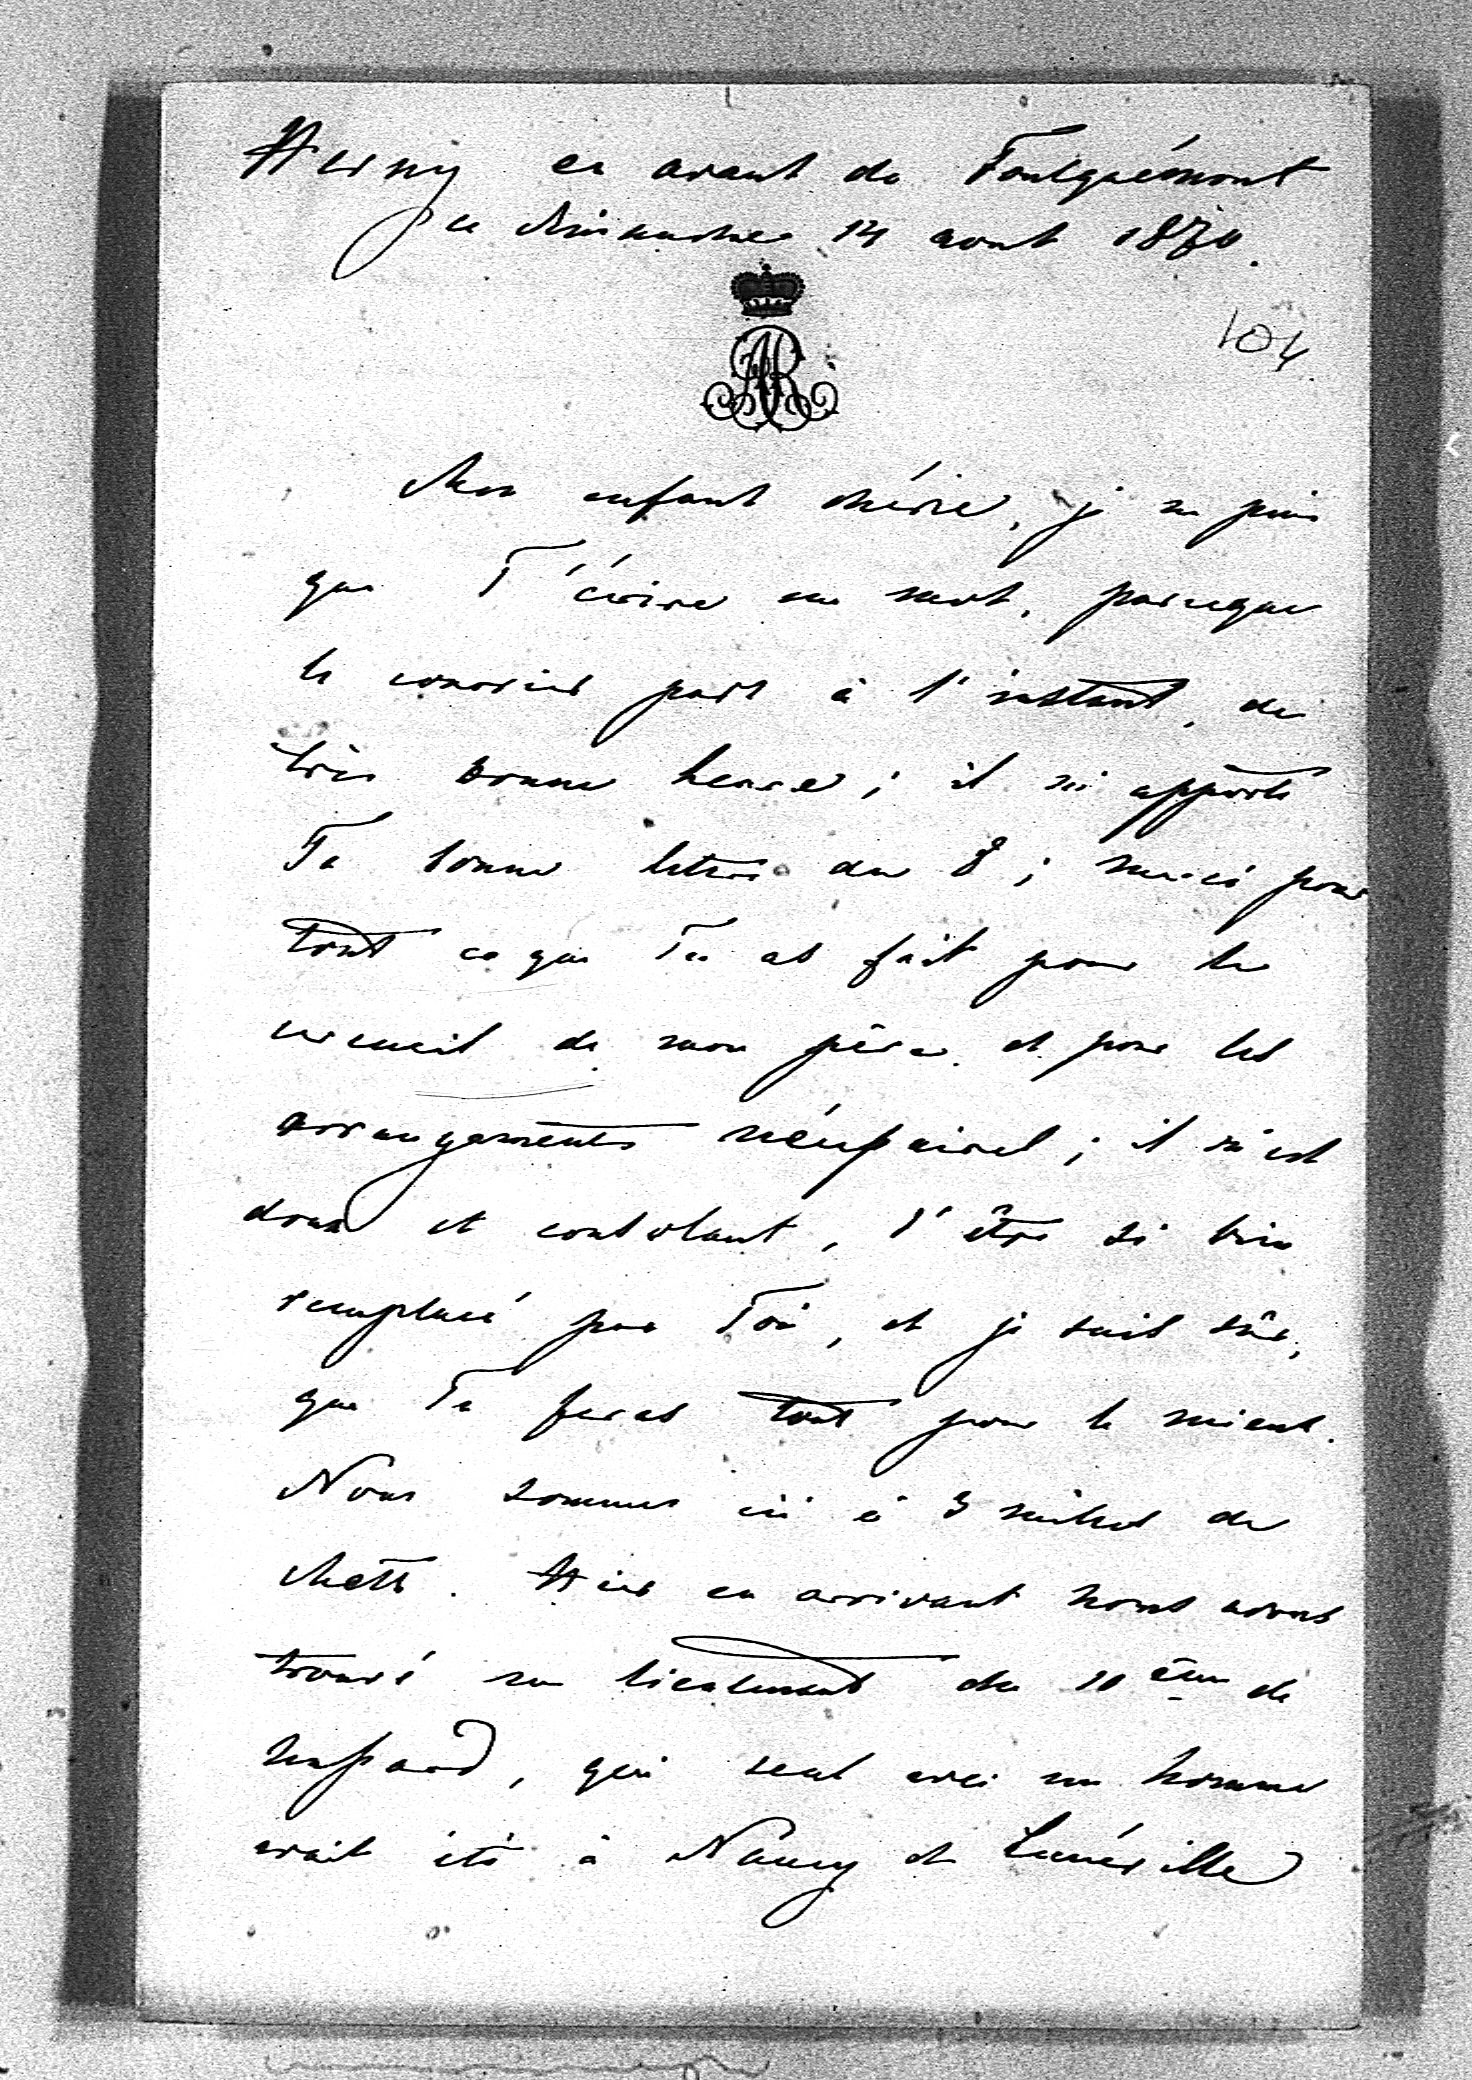 Herny en avant de Faulquémont
ce Dimanche 14 aout 1870.
104
Mon enfant chérie, je ne puis
que T'écrire un mot, parceque
le courrier part à l'instant, de
très bonne heure; il m'apporte
Ta bonne lettre du 8; merci pour
tout ce que Tu as fait pour le
cercueil de mon père et pour les
arrangements nécessaires; il m'est
doux et consolant, d'être si bien
remplacé par Toi, et je suis sûr,
que Tu feras tout pour le mieux.
Nous sommes ici à 3 milles de
Metz. Hier en arrivant nous avons
trouvé un lieutenant du 10ème de
hussard, qui seul avec un homme
avait été à Nancy et Lunéville